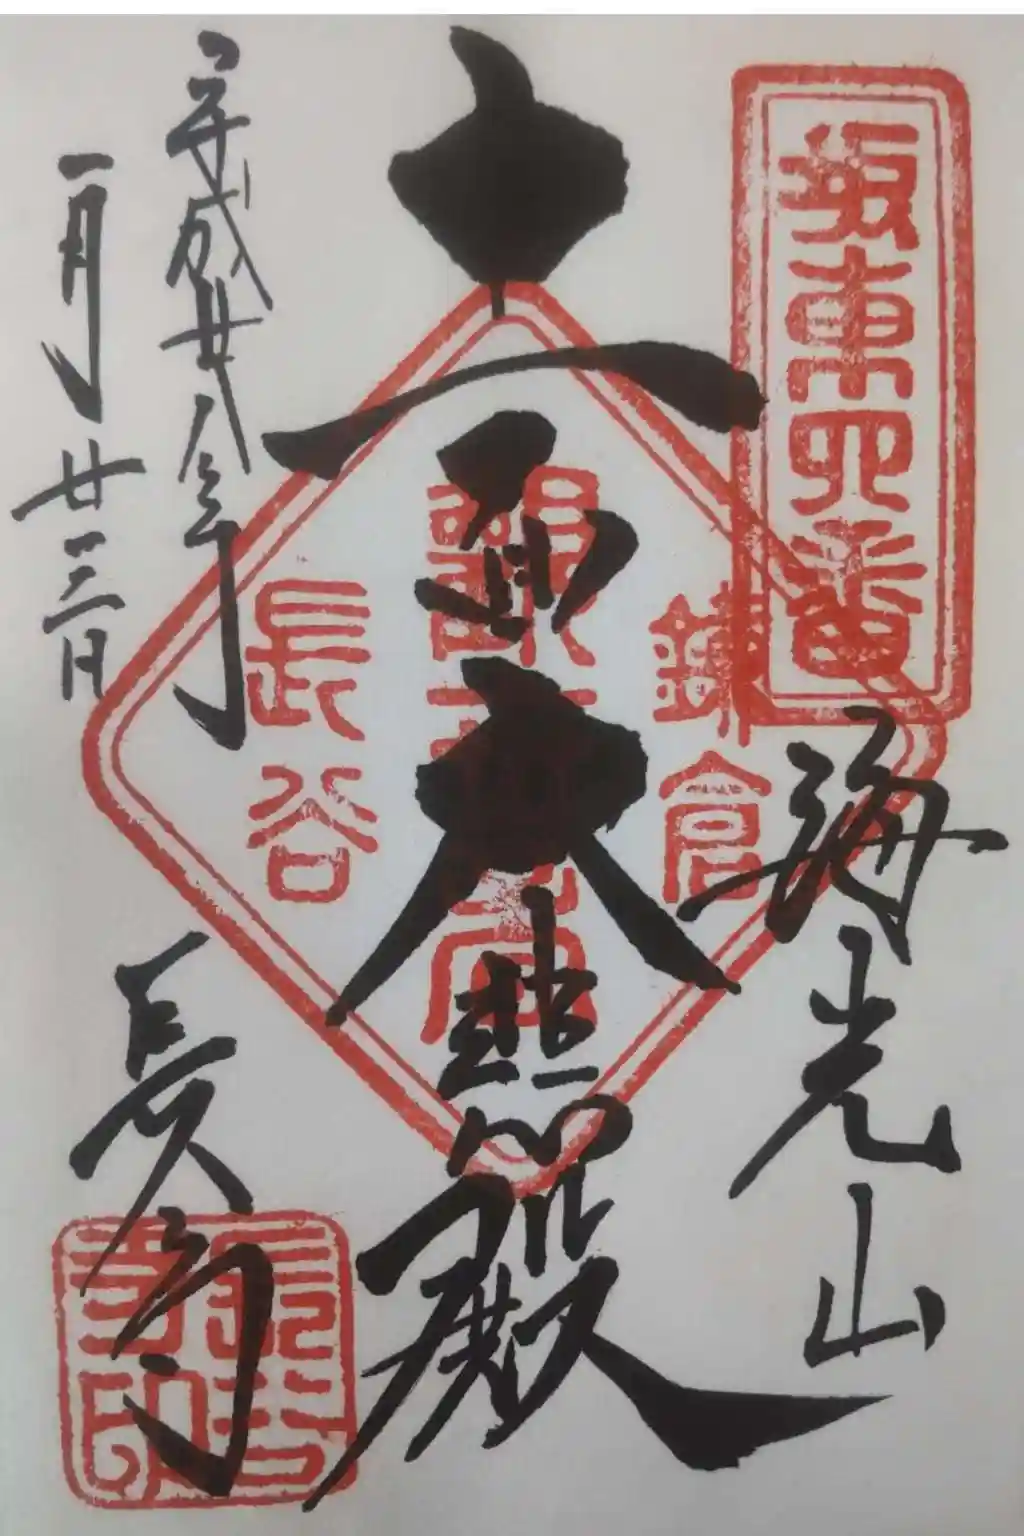 坂東四番
海光山
鎌倉
十一面大悲殿
長谷
長谷寺
長谷寺印
平成廿八年
一月廿三日